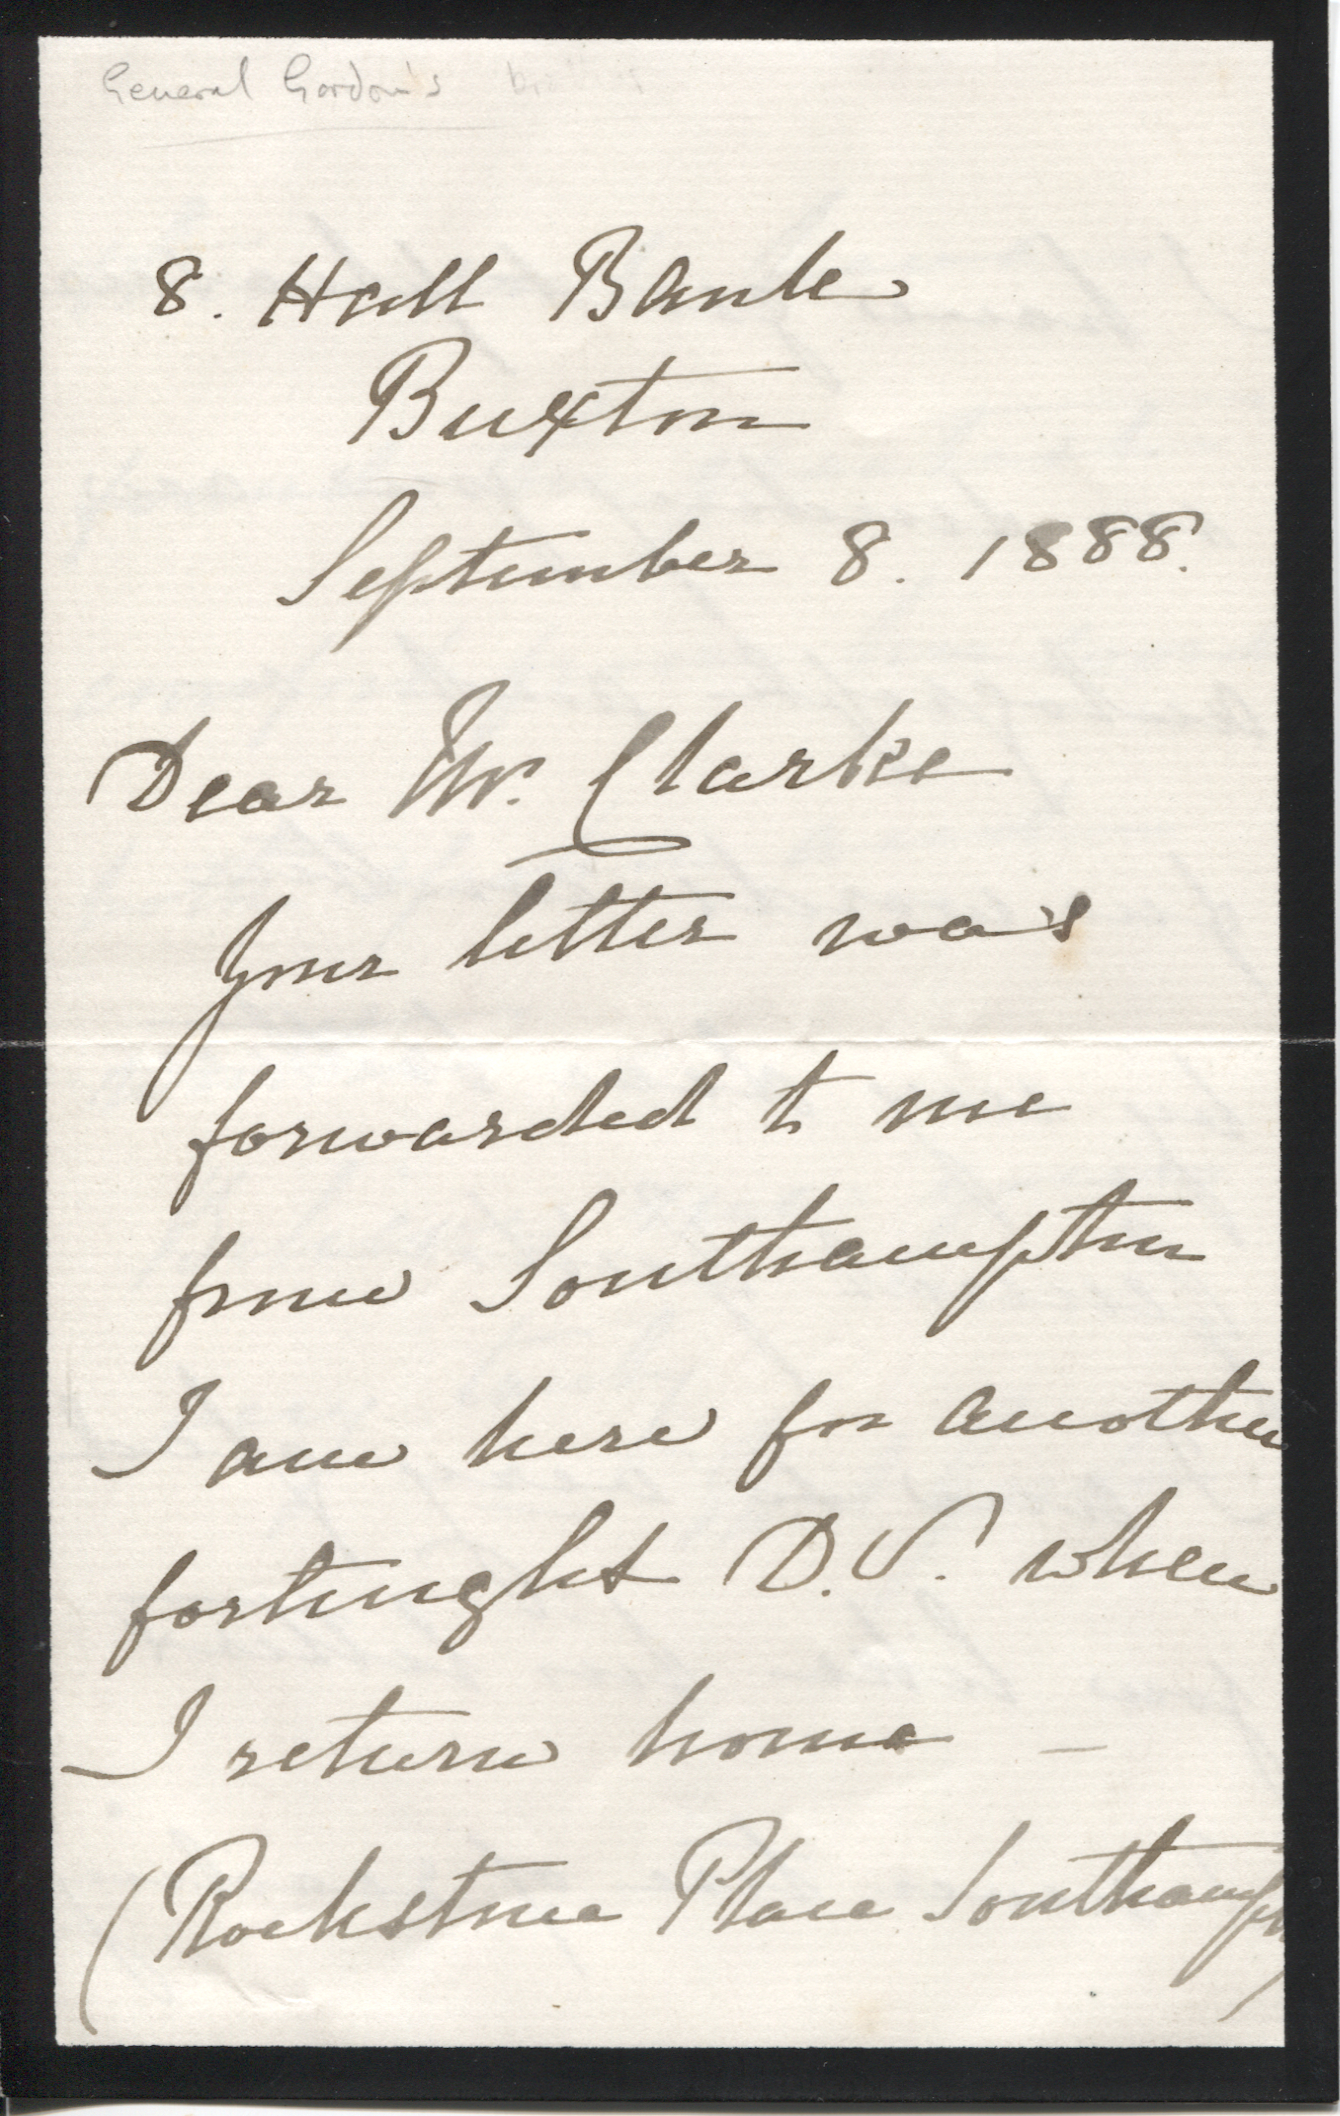 General Gordon's
8. Hall Bank
Buxton
September 8. 1888.
Dear Mr. Clarke
Your letter was
forwarded to me
from Southampton
I am here for another
fortnight D.V. when
I return home —
(Rockstone Place Southampton)